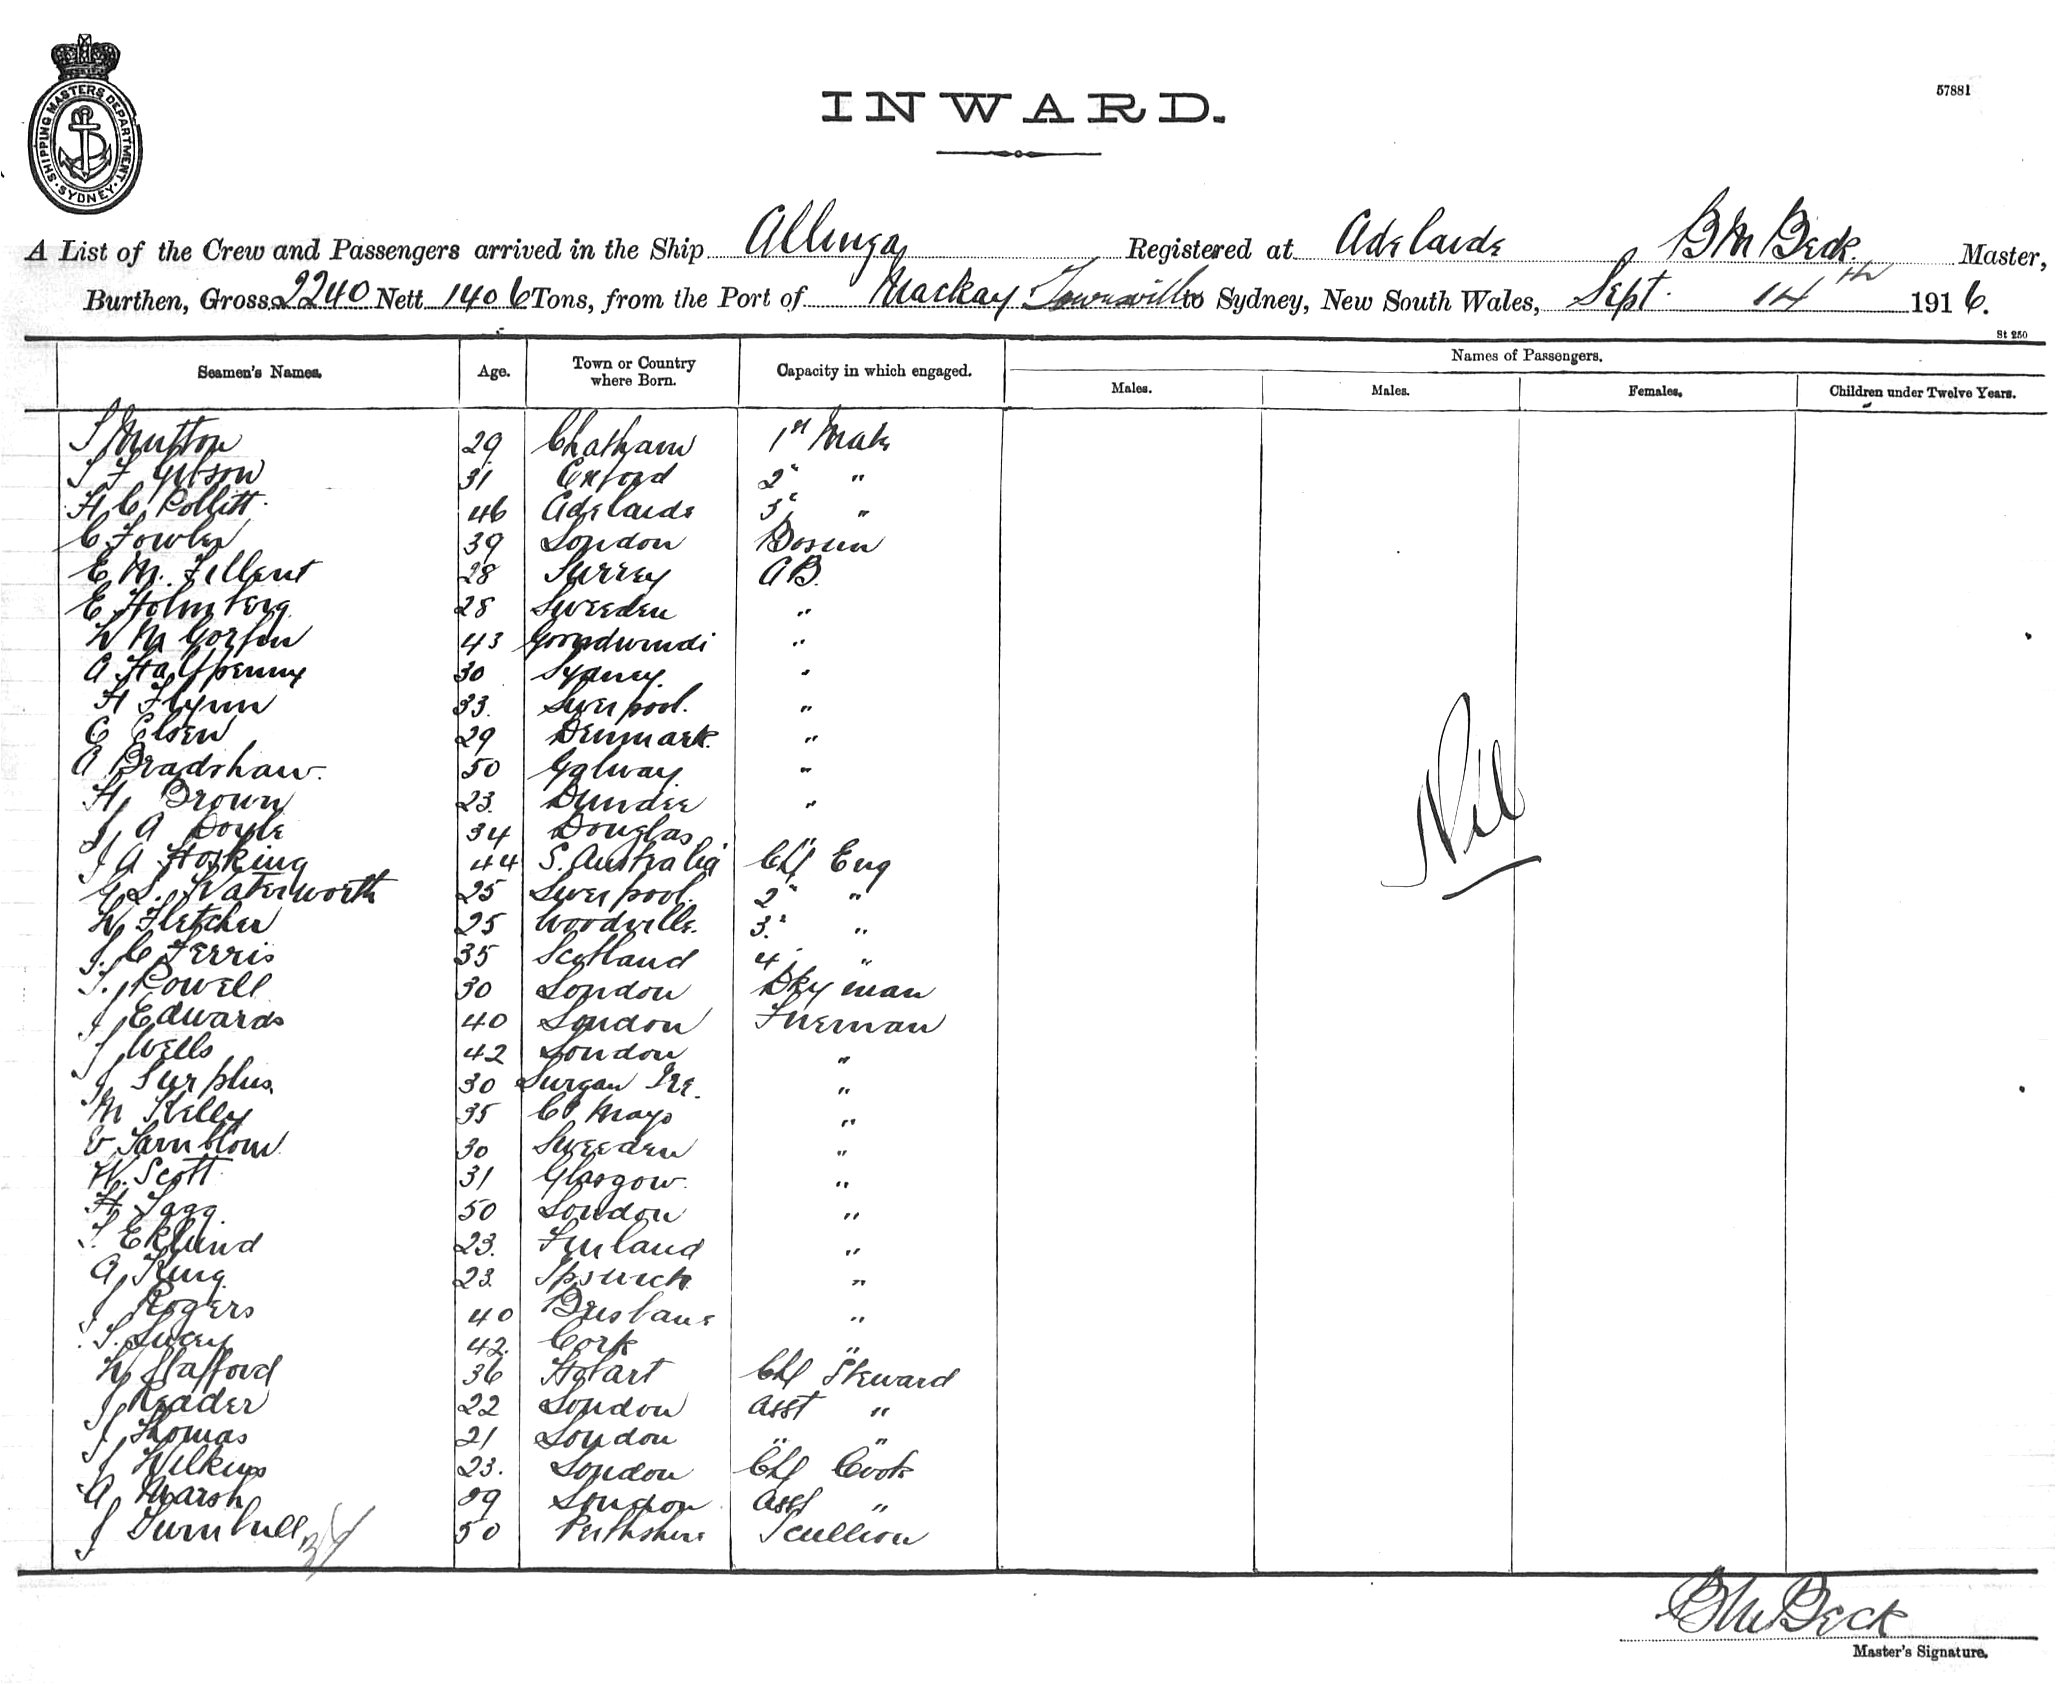 SHIPPING MASTERS DEPARTMENT
SYDNEY
57881
INWARD.
A List of the Crew and Passengers arrived in the Ship Allinga Registered at Adelaide B M Beck. Master,
Burthen, Gross 2240 Nett 1406 Tons, from the Port of Mackay Townsville to Sydney, New South Wales, Sept. 14th 1916.
St 250
Seamen's Names. Age. Town or Country where Born. Capacity in which engaged. Names of Passengers.
Males. Males. Females. Children under Twelve Years.
J Mutton 29 Chatham 1st Mate
S F Gibson 31 Oxford 2" "
H C Pollitt 46 Adelaide 3" "
C Fowler 39 London Bosun
E. M. Fellent 28 Surrey AB.
E Holmberg 28 Sweeden "
W M 43 Goondwindi "
A Halfpenny 30 Sydney. "
H Flynn 33. Liverpool. "
C Elsen 29 Denmark. "
A Bradshaw. 50 Galway "
H Brown 23. Dundee "
J A Doyle 34 Douglas
J A Hosking 44 S. Australia Chf Eng
G. L. Waterworth 25 Liverpool. 2" "
W Fletcher 25 Woodville. 3." "
J. C Ferris 35 Scotland 4 "
T. Powell 30 London Dky man
J Edwards 40 London Fireman
J Wells 42 London "
J Surplus 30 Lurgan Ire. "
M Kelly 35 Co. Mayo "
E Tarnblom 30 Sweeden "
W. Scott 31 Glasgow. "
H Tagg 50 London "
T. Eklund 23. Finland "
A King. 23. Ipswich. "
J Rogers 40 Brisbane "
T. Lucey 42. Cork "
W Stafford 36 Hobart Chf Steward
J Reader 22 London Asst "
J Thomas 21 London " "
J Wilkins 23. London Chf Cook
A Marsh 29 London Asst "
J Turnbull 50 Perthshire Scullion
Nil
B M Beck
Master's Signature.